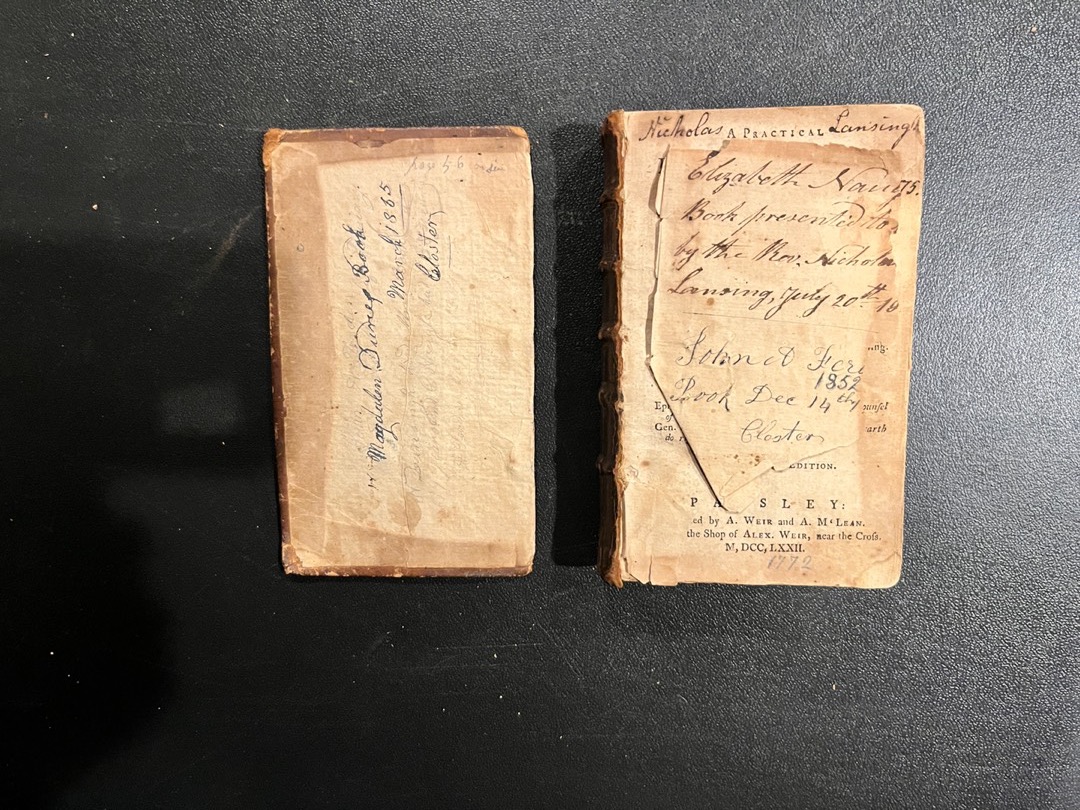 Magdalen Duries Book
March 1865
Closter
Nicholas A PRACTICAL Lansingh
Elizabeth Nau
75.
Book presented to
by the Rev. Nichola
Lansing, July 20th 18
ng.
John A Fer
1852
Book Dec 14th
Closter
Ep
ounsel
of
Gen.
arth
do
EDITION.
PA S L E Y:
ed by A. WEIR and A. McLEAN.
the Shop of ALEX. WEIR, near the Cross.
M, DCC, LXXII.
1772